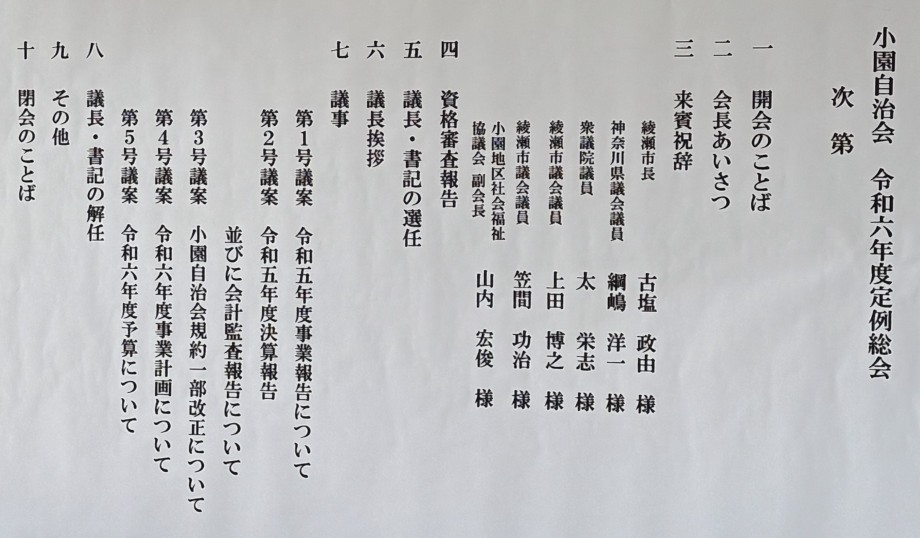 小園自治会　令和六年度定例総会
次　第
一　開会のことば
二　会長あいさつ
三　来賓祝辞
綾瀬市長　古塩　政由　様
神奈川県議会議員　綱嶋　洋一　様
衆議院議員　太　栄志　様
綾瀬市議会議員　上田　博之　様
綾瀬市議会議員　笠間　功治　様
小園地区社会福祉
協議会 副会長　山内　宏俊　様
四　資格審査報告
五　議長・書記の選任
六　議長挨拶
七　議事
第1号議案　令和五年度事業報告について
第2号議案　令和五年度決算報告
並びに会計監査報告について
第3号議案　小園自治会規約一部改正について
第4号議案　令和六年度事業計画について
第5号議案　令和六年度予算について
八　議長・書記の解任
九　その他
十　閉会のことば